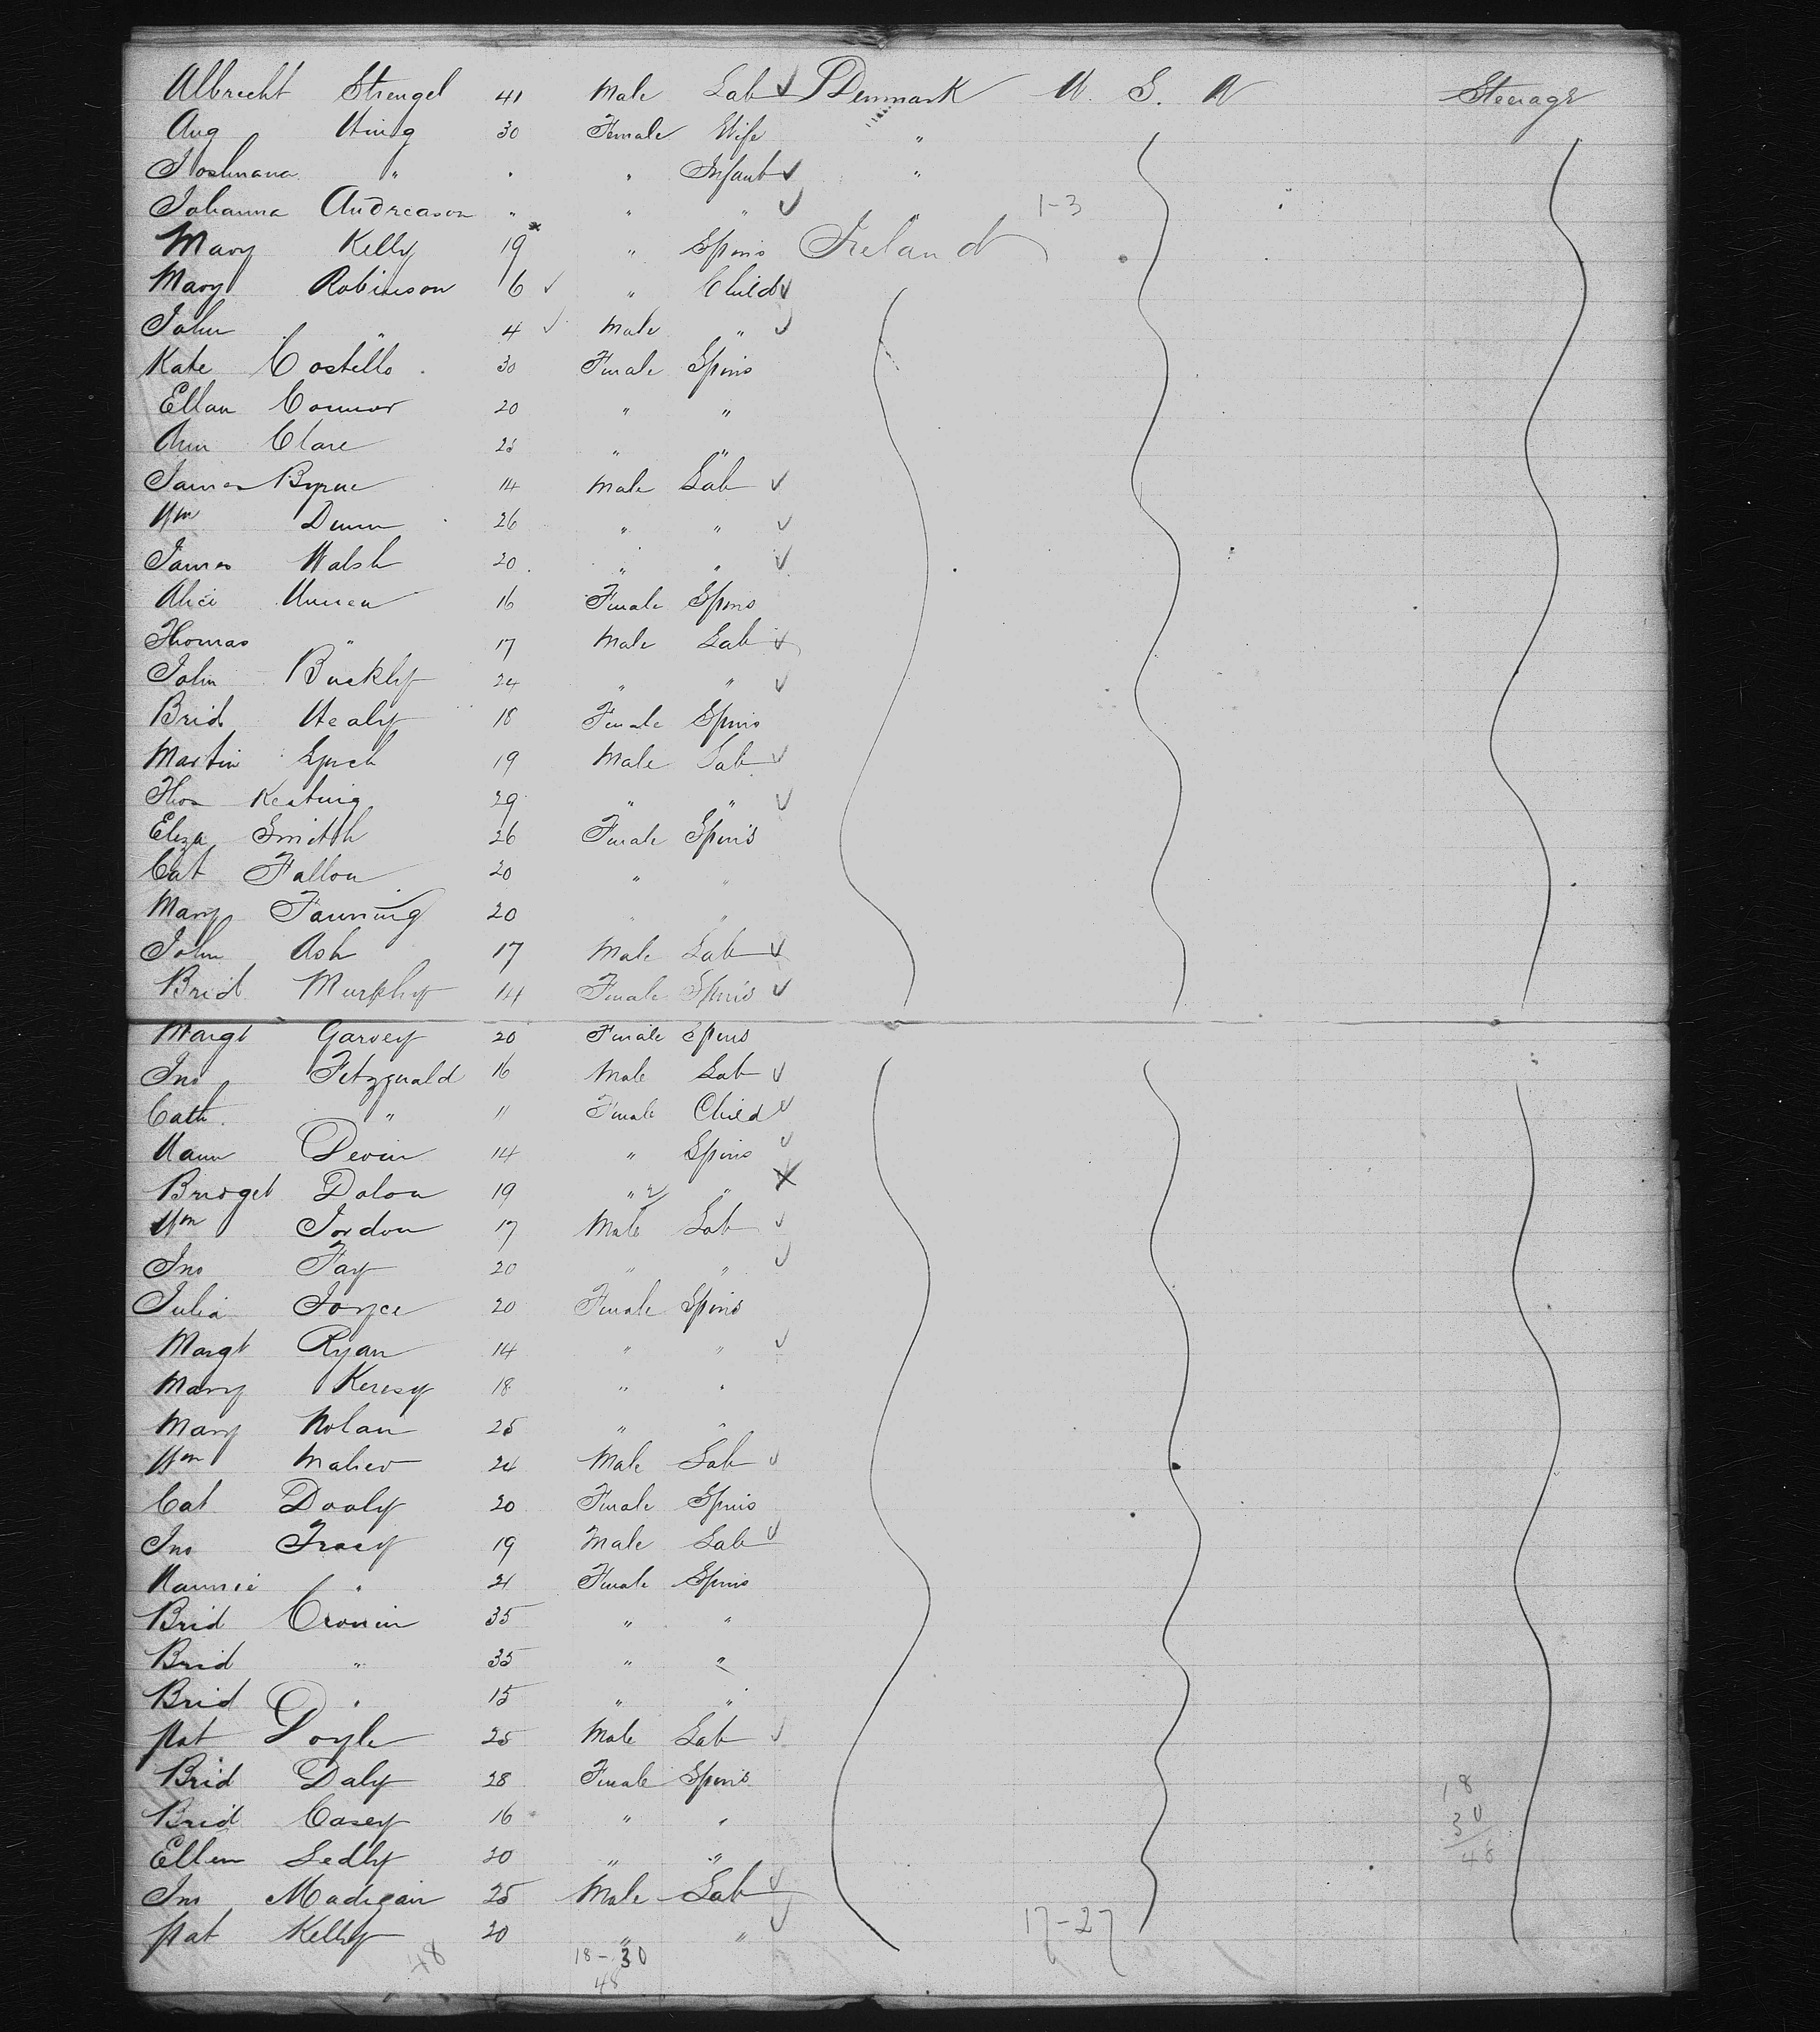 Albrecht Strengel 41 Male Lab Denmark U. S. A Steerage
Aug 30 Female Wife "
" " " Infant "
Johanna Andreason " " "
1-3
Mary Kelly 19 " Spins Ireland
Mary Robinson 6 " Child
John " 4 Male "
Kate Costello 30 Female Spins
Ellan Connor 20 " "
Ann Clare 25 " "
James Byrne 14 Male Lab
Wm Dunn 26 " "
James Walsh 20 " "
Alice 16 Female Spins
Thomas " 17 Male Lab
John Buckly 24 " "
Brid Healy 18 Female Spins
Martin Lynch 19 Male Lab
Thos Keating 29 " "
Eliza Smith 26 Female Spins
Cat Fallon 20 " "
Mary Fanning 20 " "
John Ash 17 Male Lab
Brid Murphy 14 Female Spins
Margt Garvey 20 Female Spins
Jno Fitzgerald 16 Male Lab
Cath " 11 Female Child
Hann Devin 14 " Spins
Bridget Dolon 19 " "
Wm Jordon 17 Male Lab
Jno Fay 20 " "
Julia Joyce 20 Female Spins
Margt Ryan 14 " "
Mary 18 " "
Mary Nolan 25 " "
Wm Maher 24 Male Lab
Cat Dooly 20 Female Spins
Jno Tracy 19 Male Lab
Nannie " 21 Female Spins
Brid Cronin 35 " "
Brid " 35 " "
Brid " 15 " "
Pat Doyle 25 Male Lab
Brid Daly 28 Female Spins
Brid Casey 16 " "
Ellen Ledly 20 " "
Jno Madigan 25 Male Lab
Pat Kelly 20 " "
17-27
18
30
48
48
18-30
48